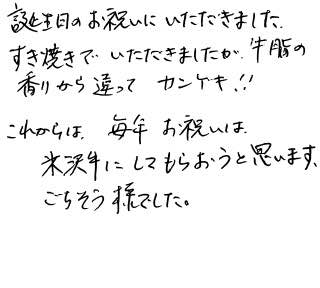 誕生日のお祝いにいただきました.
すき焼きでいただきましたが、牛脂の
香りから違ってカンゲキ!!
これからは、毎年お祝いは、
米沢牛にしてもらおうと思います、
ごちそう様でした。